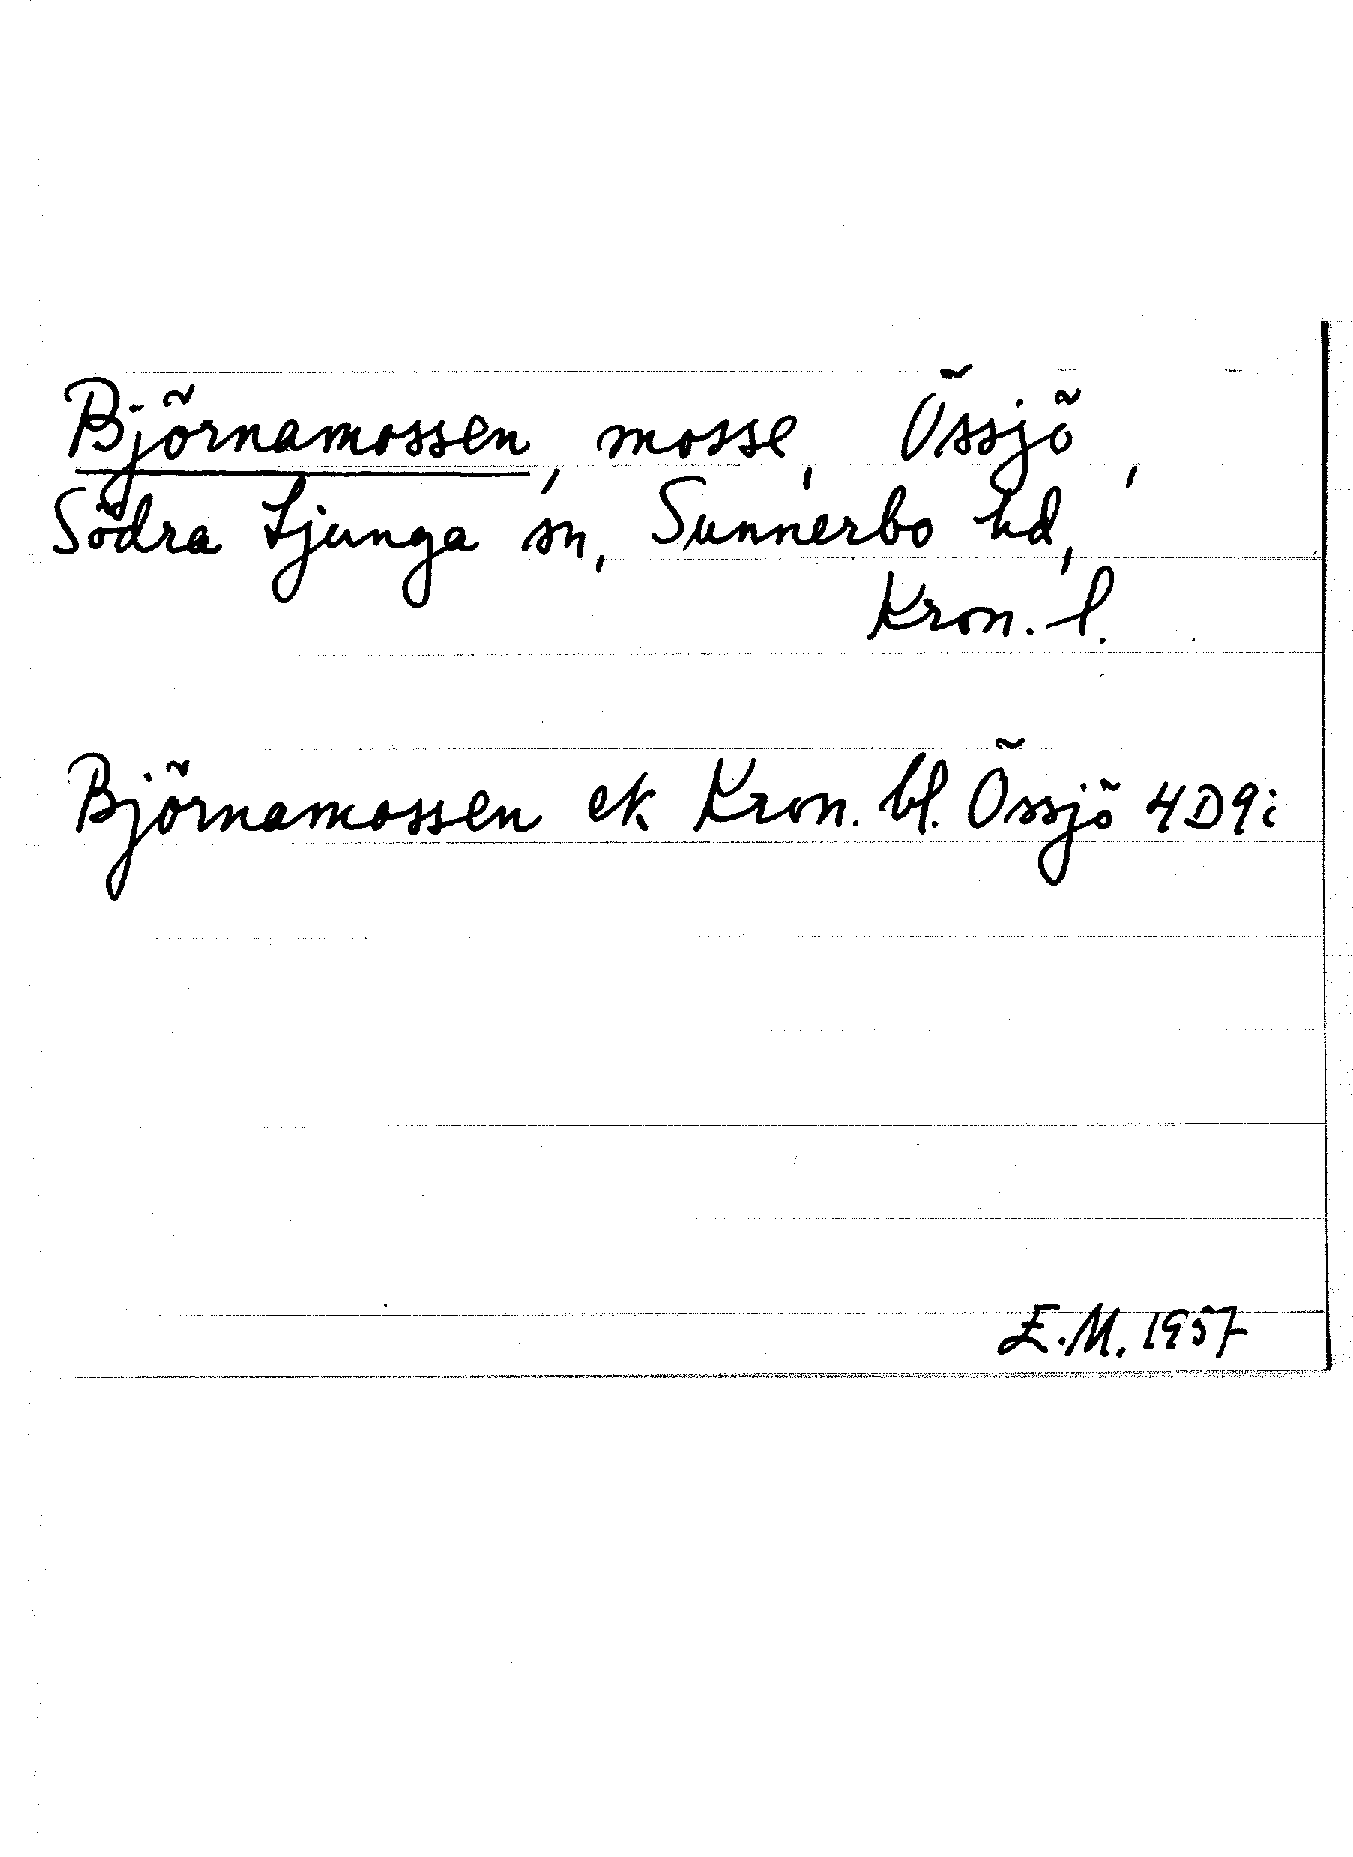 Björnamossen, mosse, Össjö,
Södra Ljunga sn, Sunnerbo hd,
Kron. l.
Björnamossen ek Kron. bl. Össjö 4D9i
E.M. 1957